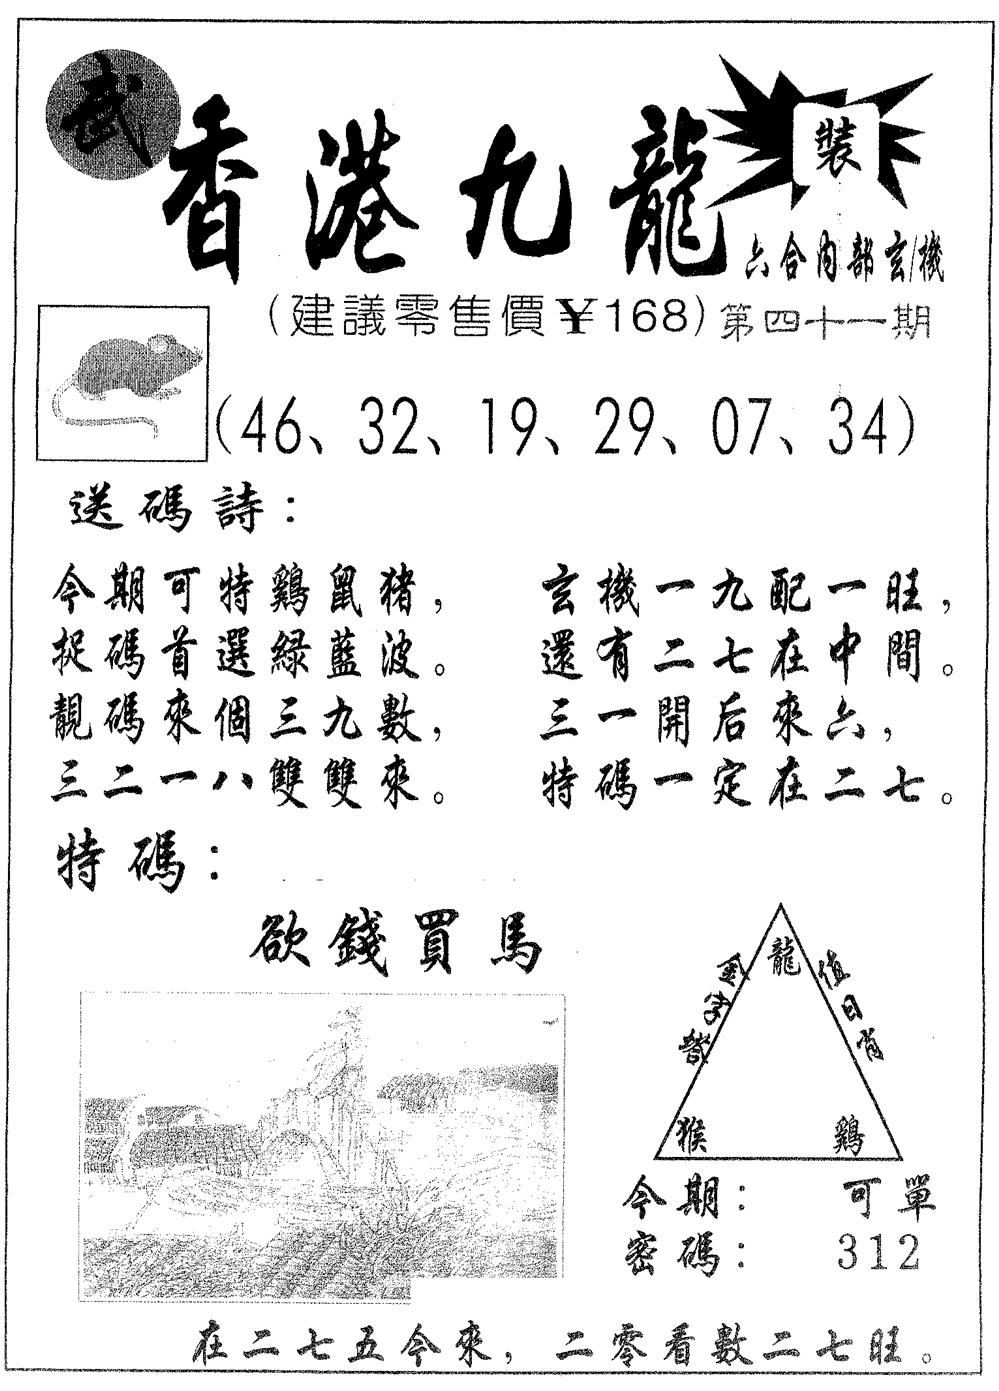 武
香港九龍
裝
六合内部玄機
(建議零售價¥168)第四十一期
(46、32、19、29、07、34)
送碼詩：
今期可特鷄鼠猪，
捉碼首選緑藍波。
靚碼來個三九數，
三二一八雙雙來。
玄機一九配一旺，
還有二七在中間。
三一開后來六，
特碼一定在二七。
特碼：
欲錢買馬
金字塔
龍
值日肖
猴
鷄
今期：可單
密碼：312
在二七五今來，二零看數二七旺。